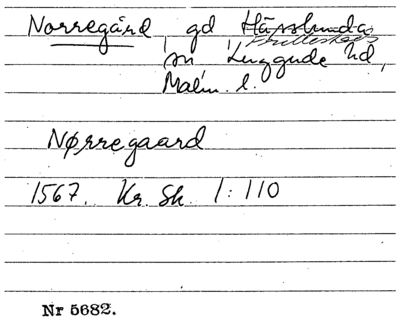 Norregård, gd Hässlunda
Frillestads
sn Luggude hd,
Malm. l.
Nørregaard
1567. Kr. Sk. 1:110
Nr 5682.